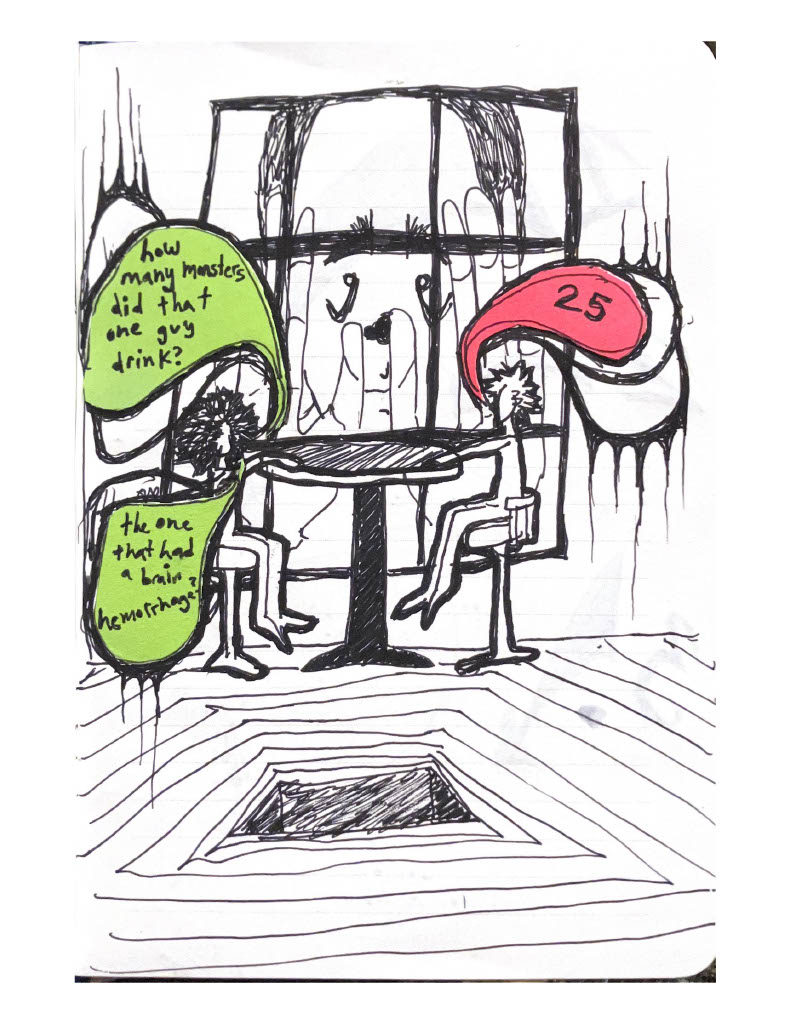 how
many monsters
did that
one guy
drink?
25
the one
that had
a brain
hemorrhage?